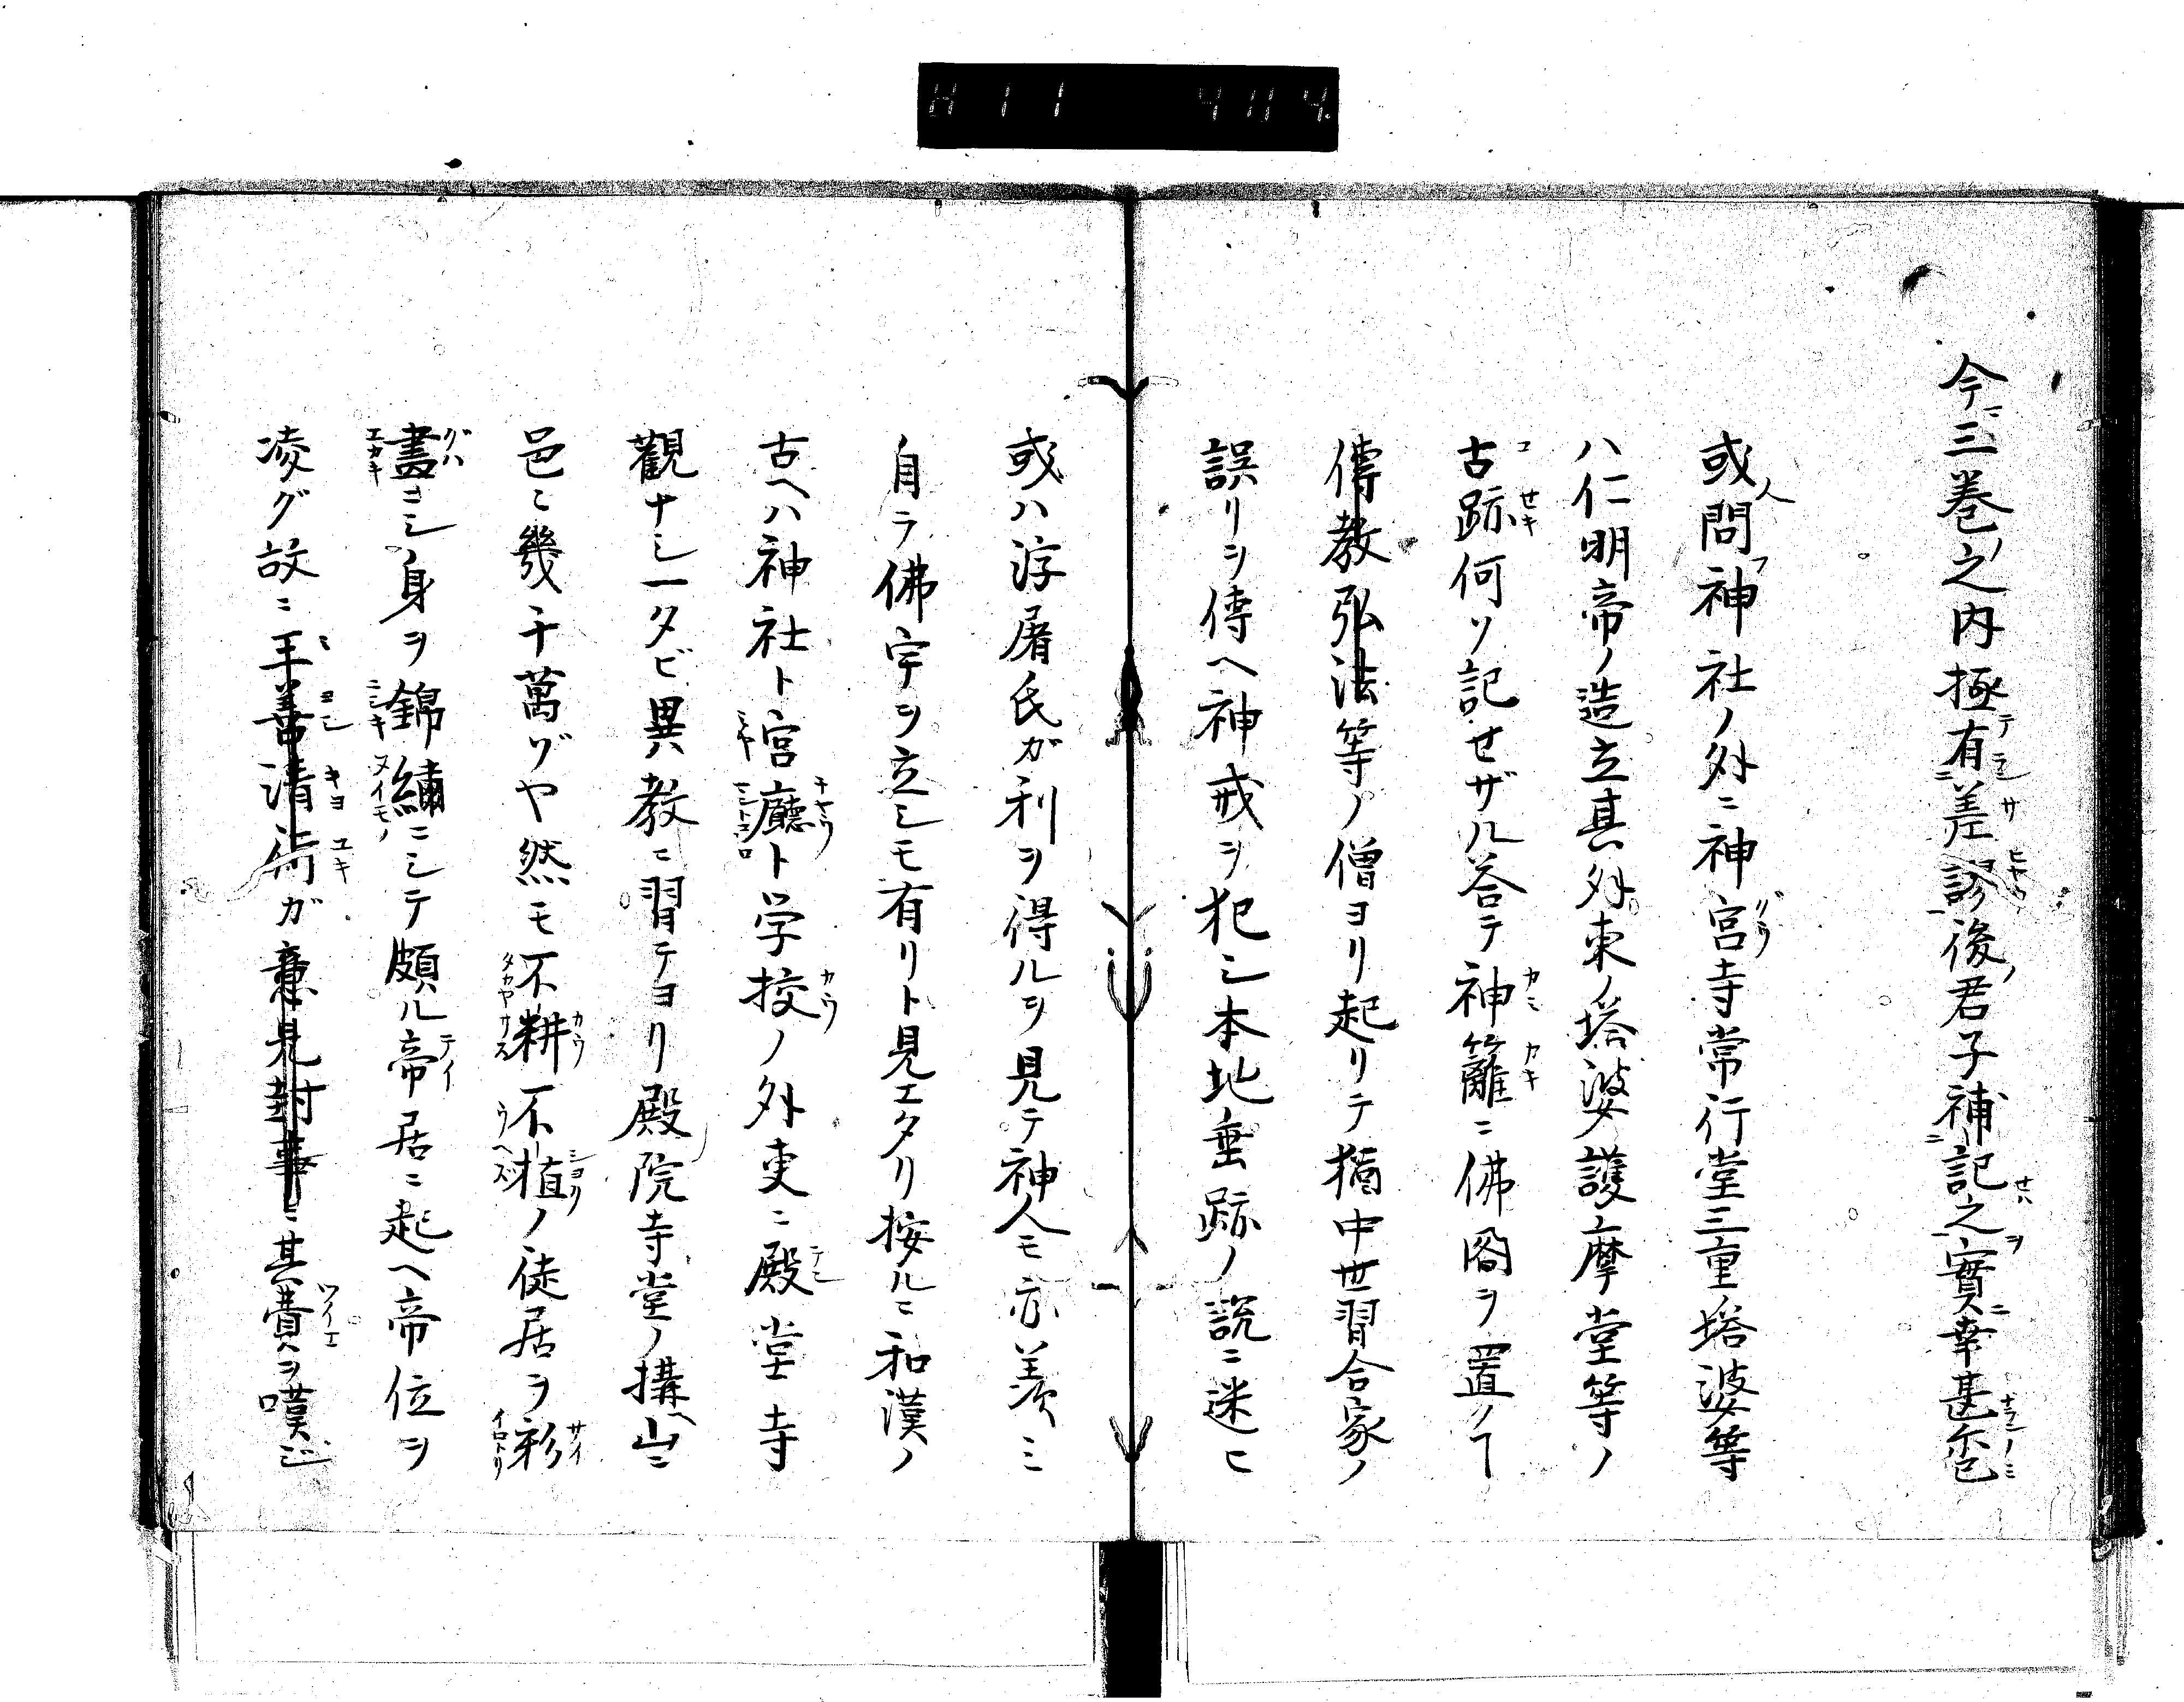 H11 4114.
今ニ三巻之内極テ有ンニ差謬後ノ君子補ニ記セハ之ヲ實ニ幸甚ナランノミ
或人問フ神社ノ外ニ神宮寺常行堂三重ノ塔婆等
ハ仁明帝ノ造立其外東ノ塔婆護摩堂等ノ
古跡何ソ記セザル答テ神籬ニ佛閣ヲ置ノ┐
傳教弘法等ノ僧ヨリ起リテ猶中世習合家ノ
誤リヲ傳ヘ神戒ヲ犯シ本地垂跡ノ説ニ迷ヒ
或ハ浮屠氏ガ利ヲ得ルヲ見テ神人モ亦羨ミ
自ラ佛宇ヲ立シモ有リト見エタリ按ルニ和漢ノ
古ヘハ神社ト宮廳ト学挍ノ外吏ニ殿堂寺
觀ナシ一タビ異教ニ習テヨリ殿院寺堂ノ搆ヘ山ニ
邑ニ幾千萬ゾヤ然モ不耕不植ノ徒居ヲ彩
畫ヨシ身ヲ錦繍ニシテ頗ル帝居ニ起ヘ帝位ヲ
凌グ故ニ三善清術ガ意見封事ニ其費ヲ嘆ジ